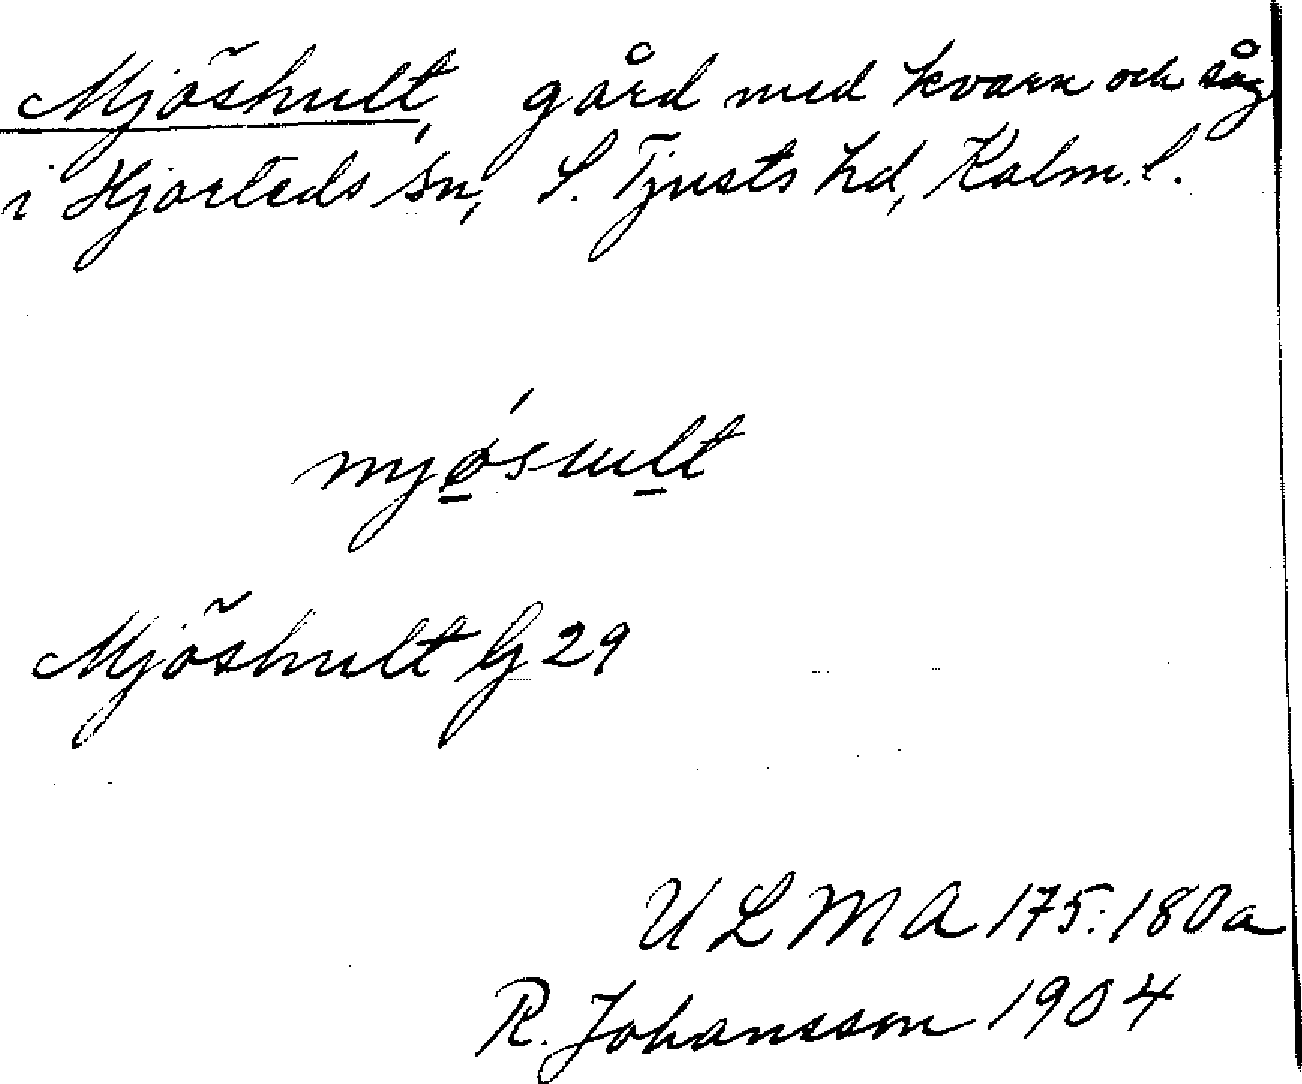 Mjöshult, gård med kvarn och såg
i Hjorteds sn, S. Tjusts hd, Kalm. l.
mjǿsult
Mjöshult G 29
ULMA 175:180a
R. Johansson 1904